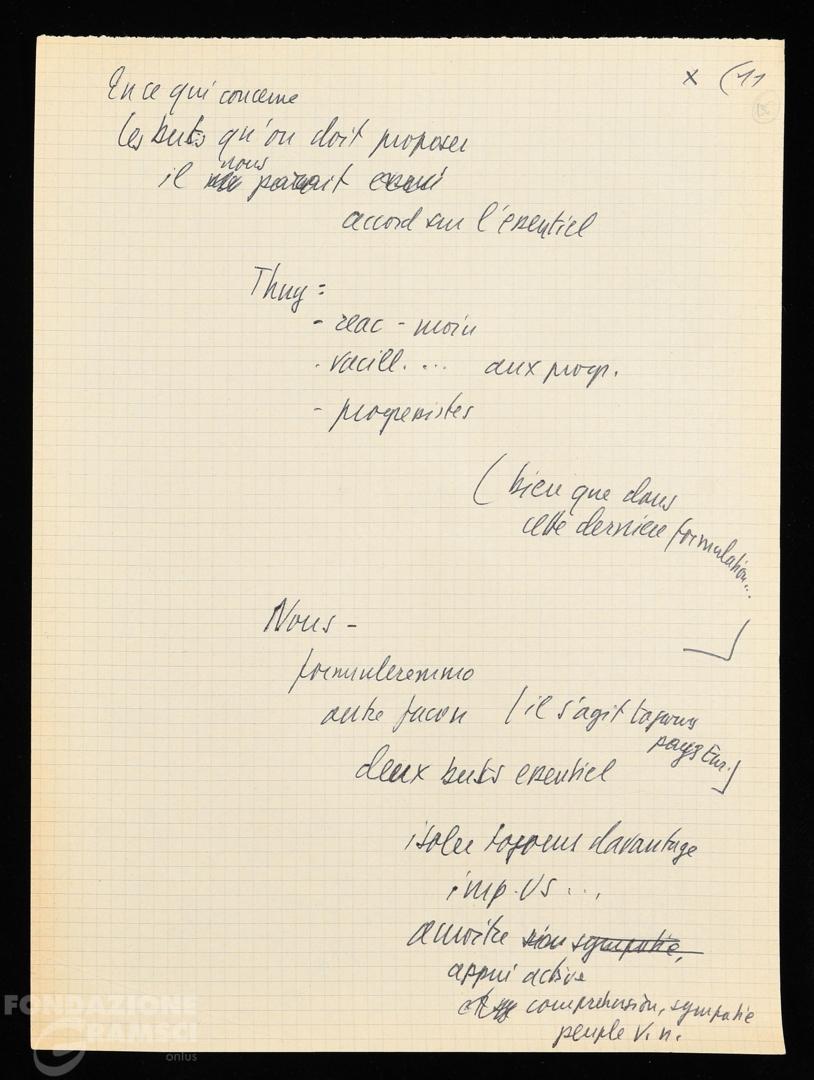 x (11
En ce qui concerne
les buts qu'on doit proposer
il nous parait
accord sur l'essentiel
Thuy =
- reac - moin
- vacill. ... aux progr.
- progressistes
( bien que dans
cette derniere formulation...
Nous -
formuleremmo
autre facon ( il s'agit toujours
pays Eur.)
deux buts essentiel
isoler toujours davantage
imp. US ...
acroitre sympatie,
appui active
comprehension, sympatie
peuple V.n.
FONDAZIONE
GRAMSCI
onlus